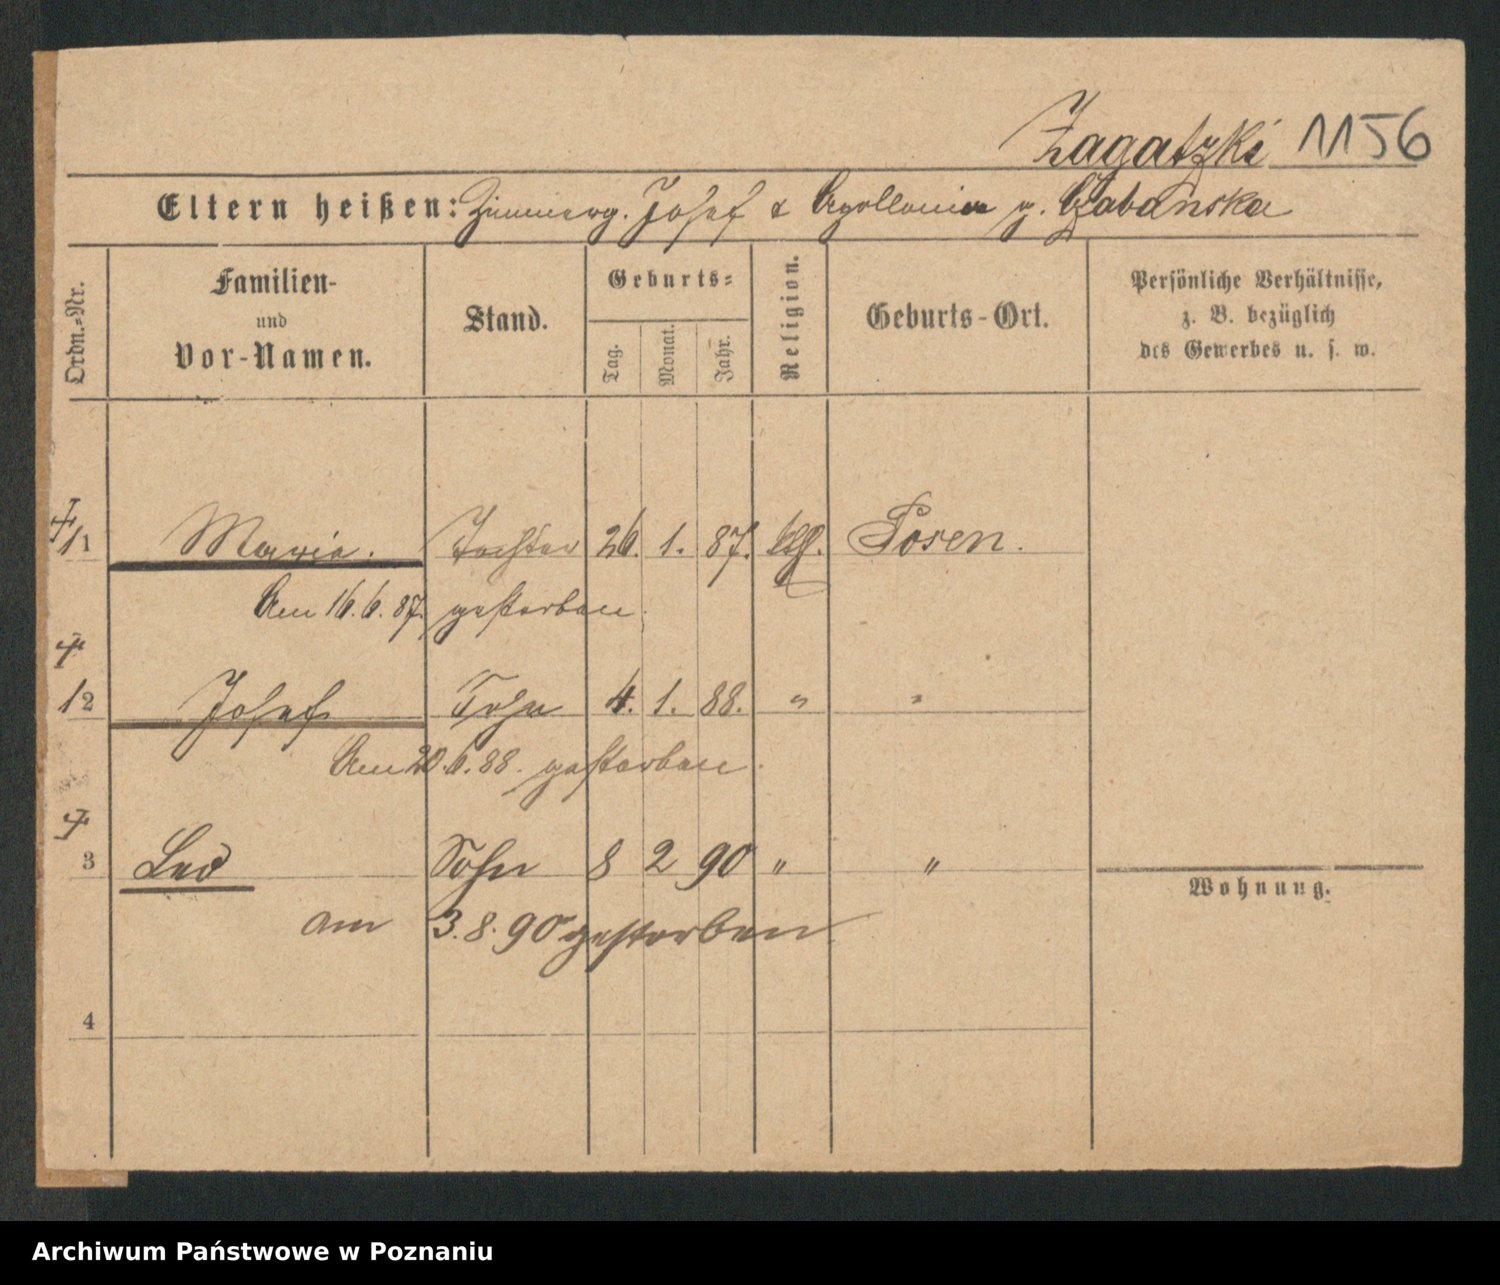 Zagatzki 1156
Eltern heißen: Zimmerg. Josef & Apollonia g. Czabańska
Ordn.-Nr.
Familien-
und
Vor-Namen.
Stand.
Geburts-
Tag.
Monat.
Jahr.
Religion.
Geburts-Ort.
Persönliche Verhältnisse,
z. B. bezüglich
des Gewerbes u. s. w.
1 Maria. Tochter 26. 1. 87. kth. Posen.
Am 16.6.87. gestorben.
2 Josef Sohn 4. 1. 88. " "
Am 20.6.88. gestorben.
3 Leo Sohn 8 2 90 " "
Wohnung.
am 3.8.90 gestorben
4
Archiwum Państwowe w Poznaniu